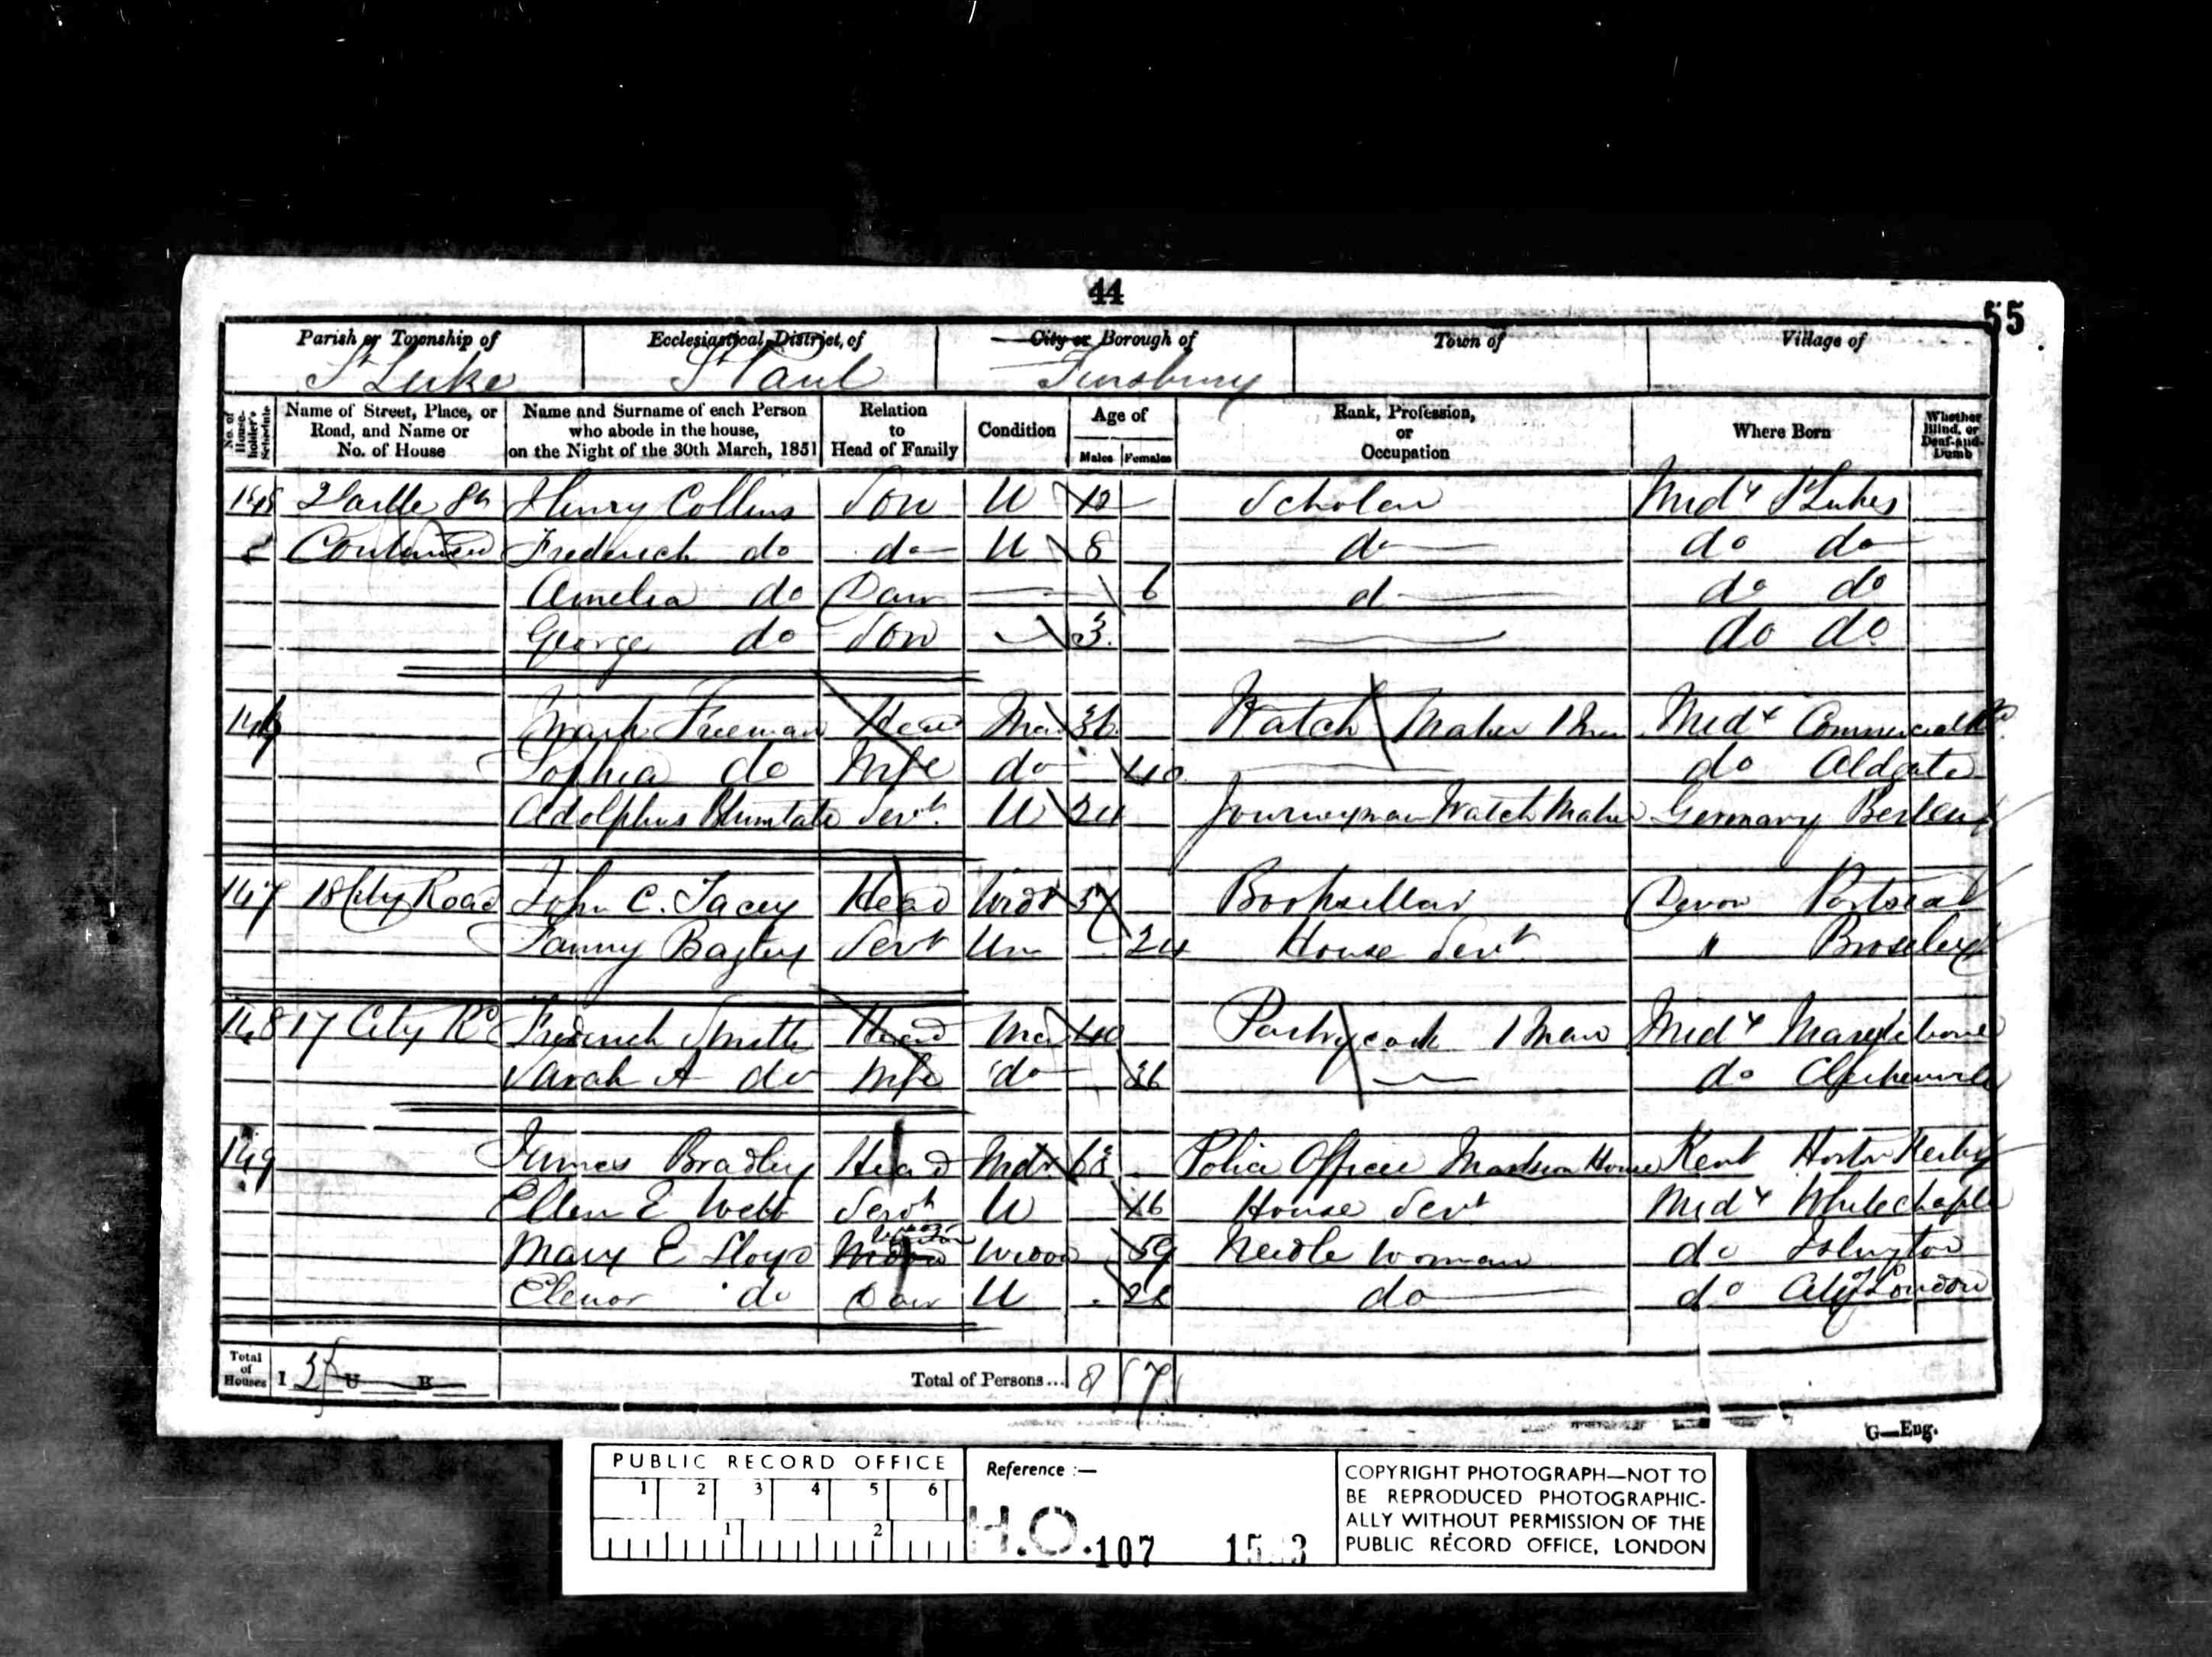 44
55
Parish or Township of Ecclesiastical District of City or Borough of Town of Village of
St Luke St Paul Finsbury
No. of House-holder's Schedule Name of Street, Place, or Road, and Name or No. of House Name and Surname of each Person who abode in the house, on the Night of the 30th March, 1851 Relation to Head of Family Condition Age of Males Females Rank, Profession, or Occupation Where Born Whether Blind, or Deaf-and-Dumb
145 Henry Collins Son U 12 Scholar Midx St Lukes
Continued Frederick do do U 8 do do do
Amelia do Daur 6 d do do
George do Son 3 do do
146 Mark Freeman Head Mar 36 Watch Maker 1 Man Midx Commercial Rd
Sophia do Wife do 40 do Aldgate
Adolphus Servt U 24 Journeyman Watch Maker Germany Berlin
147 18 City Road John C. Tacey Head Widr 57 Bookseller Devon
Fanny Bagley Servt Un 24 House Servt " Broseley
148 17 City Rd Frederick Smith Head Mar 40 Pastrycook 1 Man Midx Marylebone
Sarah A do Wife do 36 do Clerkenwell
149 James Bradley Head Widr 63 Police Officer Mansion House Kent Horton Kerby
Ellen E Webb Servt U 16 House Servt Midx Whitechaple
Mary E Lloyd Widow 59 Needle Woman do Islington
Elenor do Daur U do do City London
Total of Houses I 3 U B Total of Persons... 8 7
G—Eng.
PUBLIC RECORD OFFICE
1 2 3 4 5 6
1 2
Reference :—
H.O. 107
COPYRIGHT PHOTOGRAPH—NOT TO
BE REPRODUCED PHOTOGRAPHIC-
ALLY WITHOUT PERMISSION OF THE
PUBLIC RECORD OFFICE, LONDON